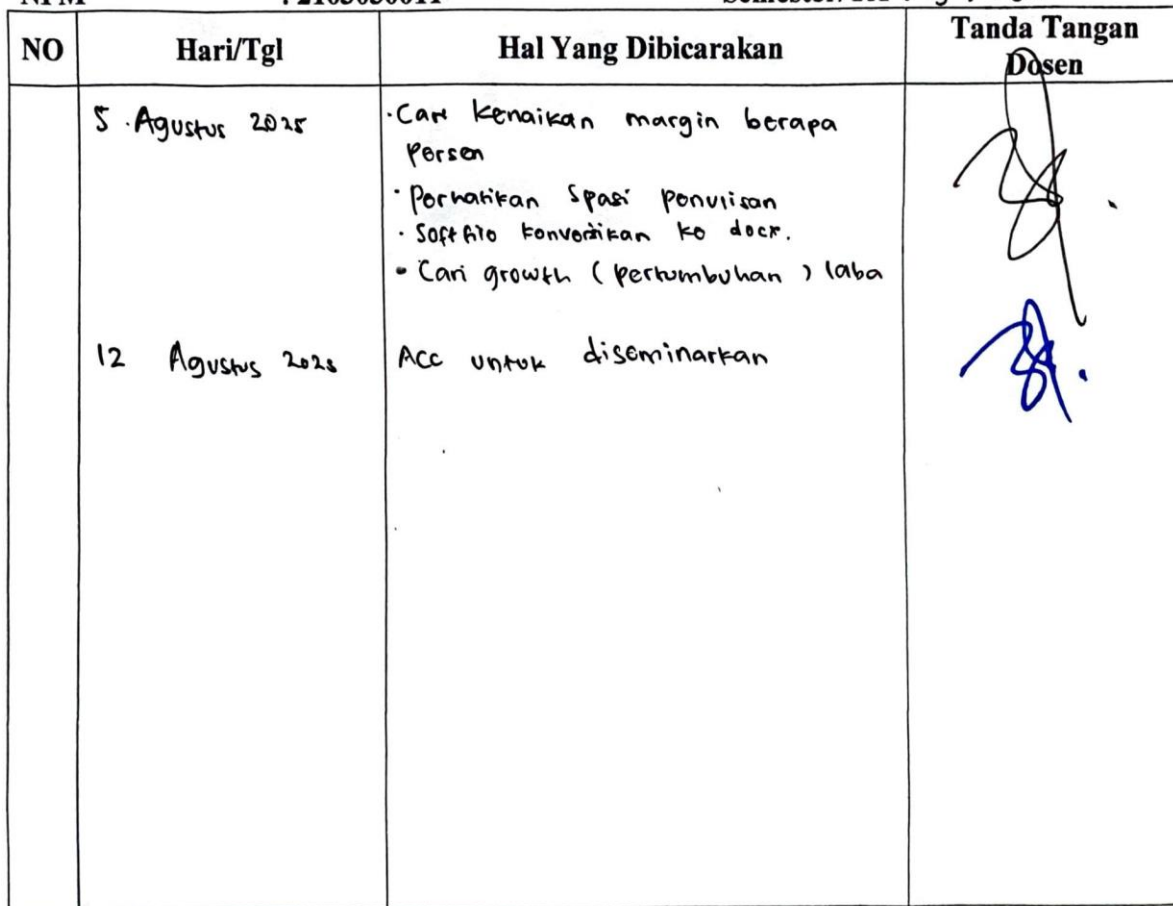 NO Hari/Tgl Hal Yang Dibicarakan Tanda Tangan
Dosen
5 Agustus 2025 · Cari kenaikan margin berapa
persen
· Perhatikan spasi penulisan
· Soft file konversikan ke docx.
· Cari growth (pertumbuhan) laba
12 Agustus 2025 Acc untuk diseminarkan